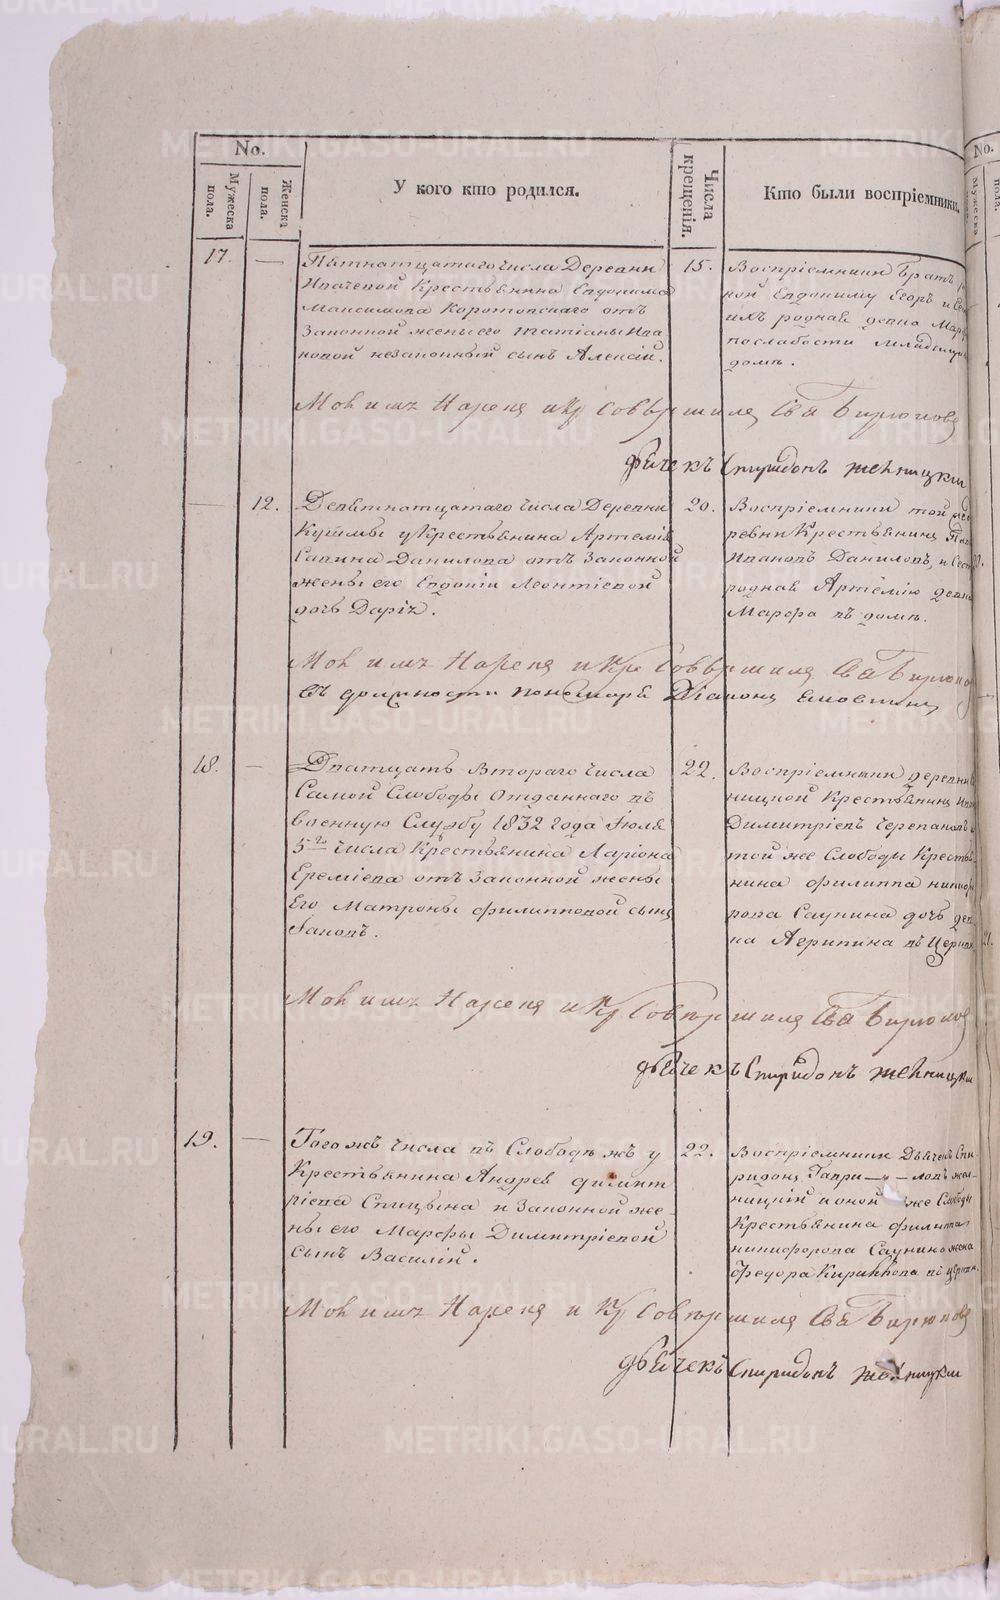 No.
Мужеска пола.
Женска пола.
У кого кто родился.
Числа крещенія.
Кто были воспріемники.
17. —
Пятнатцатаго числа Деревни
Ипатевой Крестьянина Евдокима
Максимова Коротовскаго отъ
Законной жены его Татіаны Ива
новой незаконный сынъ Алексій.
15.
Воспріемники братъ
ной Евдокиму Егоръ и
ихъ родная девка
послабости младенца
доме.
Мов имя Нарепя и Кр Соввршиля Свя Бирюковъ
дьячекъ Спиридонъ Женницкии
— 12.
Девятнатцатаго числа Деревни
у Крестьянина Артемія
Савина Данилова отъ Законной
жены его Евдокіи Леонтіевой
дочь Дарія.
20.
Воспріемники той
ревни Крестьянинъ
Ивановъ Даниловъ, и
родная Артемію девка
Марфа въ доме.
Мов имя Нарепя и Кр Соввршиля Свя Бирюков
въ должности пономаря
18. —
Дватцать Втораго числа
Самой Слободы Отданнаго въ
военную Службу 1832 года Іюля
5го числа Крестьянина Ларіона
Ереміева отъ Законной жены
Его Матроны Филипповой сынъ
Іаковъ.
22.
Воспріемники деревни
ницкой Крестьянинъ
Димитріевъ Черепановъ
той же Слободы Крестья
нина Филиппа ники
рова Саунина дочь дев
ка Агрипина въ Церкви
Мов имя Нарепя и Кр Соввршиля Свя Бирюков
дьячекъ Спиридонъ Женницки
19. —
Того жъ числа въ Слободе жъ у
Крестьянина Андрея Димит
ріева Спицына и Законной же
ны его Марфы Димитріевой
сынъ Василій.
22.
Воспріемники Дьячекъ Спи
ридонъ Гаври — ловъ жен
ницкій и оной же Слободы
Крестьянина Филиппа
никифорова Саунина жена
Федора Кирилова въ церкви.
Мов имя Нарепя и Кр Соввршиля Свя Бирюков
дьячекъ Спиридонъ Женницкии
METRIKI.GASO-URAL.RU